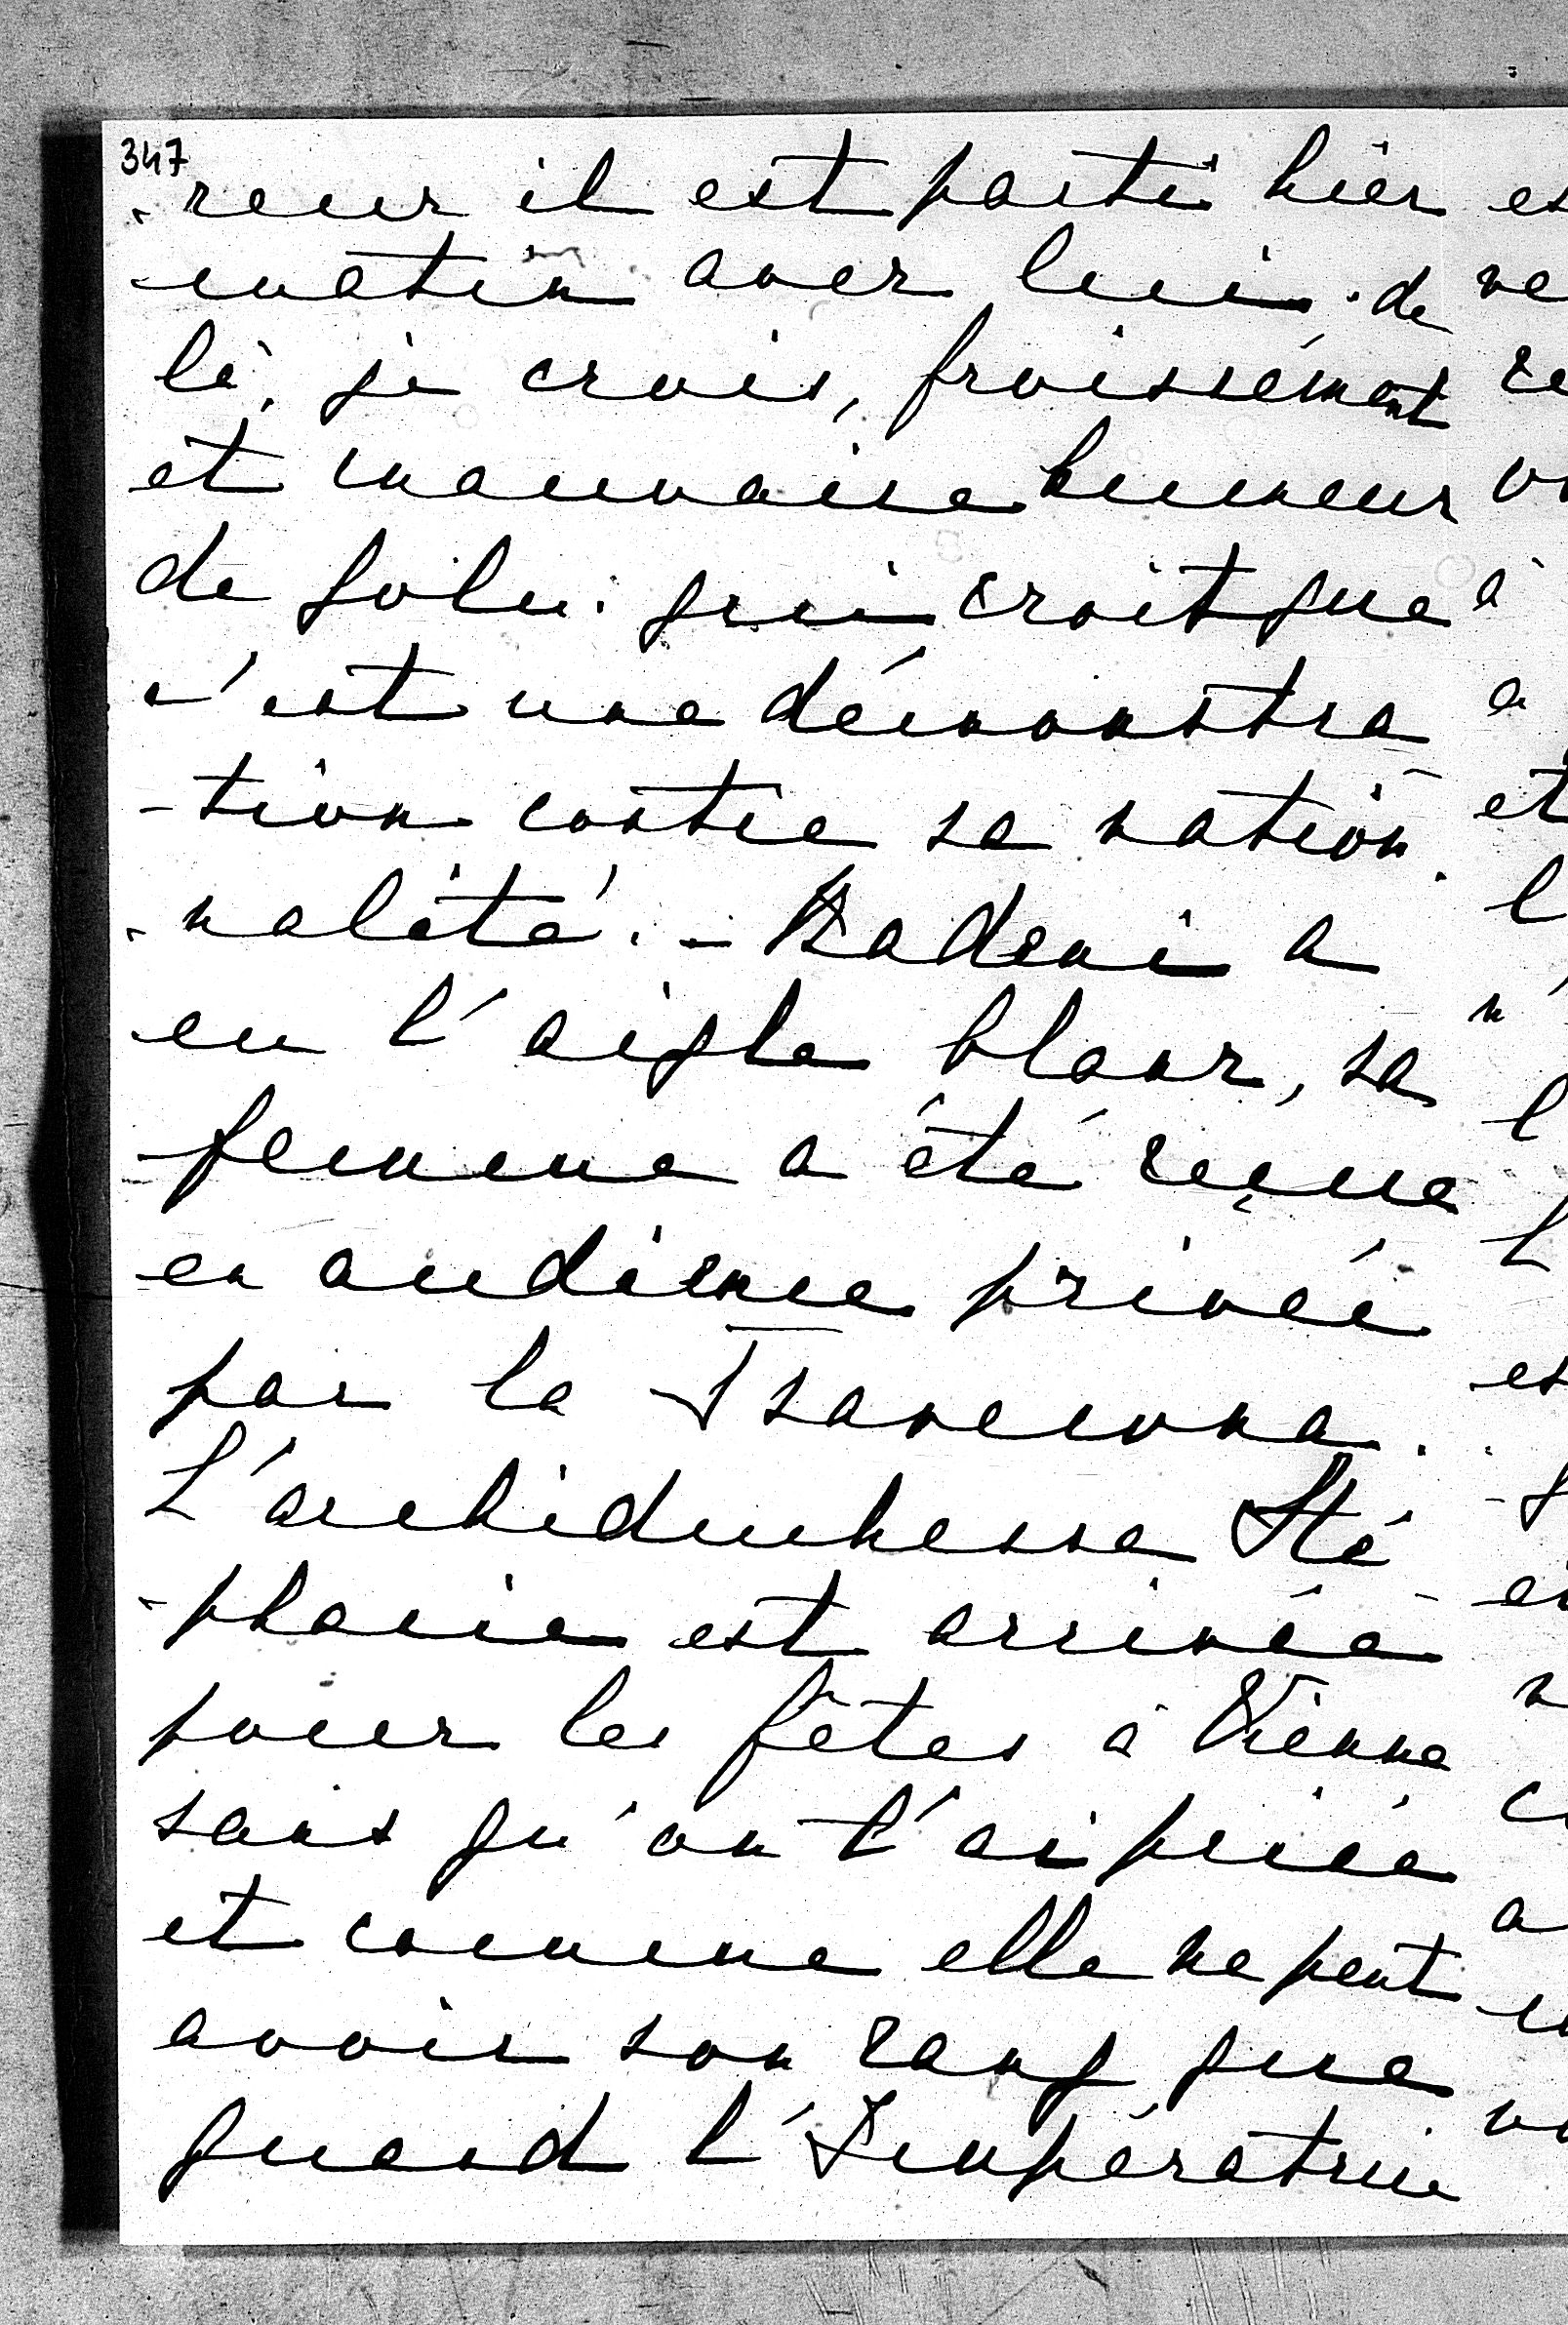 347
-reur il est parti hier
matin avec lui. de
là, je crois, froissement
et mauvaise humeur
de Golu. qui croit que
c'est une démonstra
-tion contre sa nation
-nalité. - Badeni a
eu l'aigle blanc, sa
femme a été reçue
en audience privée
par la Tsarewna.
L'archiduchesse Sté
-phanie est arrivée
pour les fêtes à Vienne
sans qu'on l'ai priée
et comme elle ne peut
avoir son rang que
quand l'Impératrice